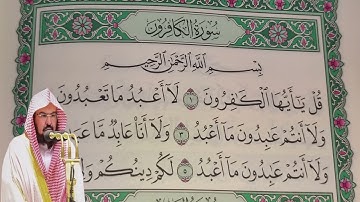 سُورَةُ الكَافِرُونَ
بِسْمِ ٱللَّهِ ٱلرَّحْمَٰنِ ٱلرَّحِيمِ
قُلْ يَٰٓأَيُّهَا ٱلْكَٰفِرُونَ ١ لَآ أَعْبُدُ مَا تَعْبُدُونَ
وَلَآ أَنتُمْ عَٰبِدُونَ مَآ أَعْبُدُ ٣ وَلَآ أَنَا۠ عَابِدٌ مَّا
وَلَآ أَنتُمْ عَٰبِدُونَ مَآ أَعْبُدُ ٥ لَكُمْ دِينُكُمْ